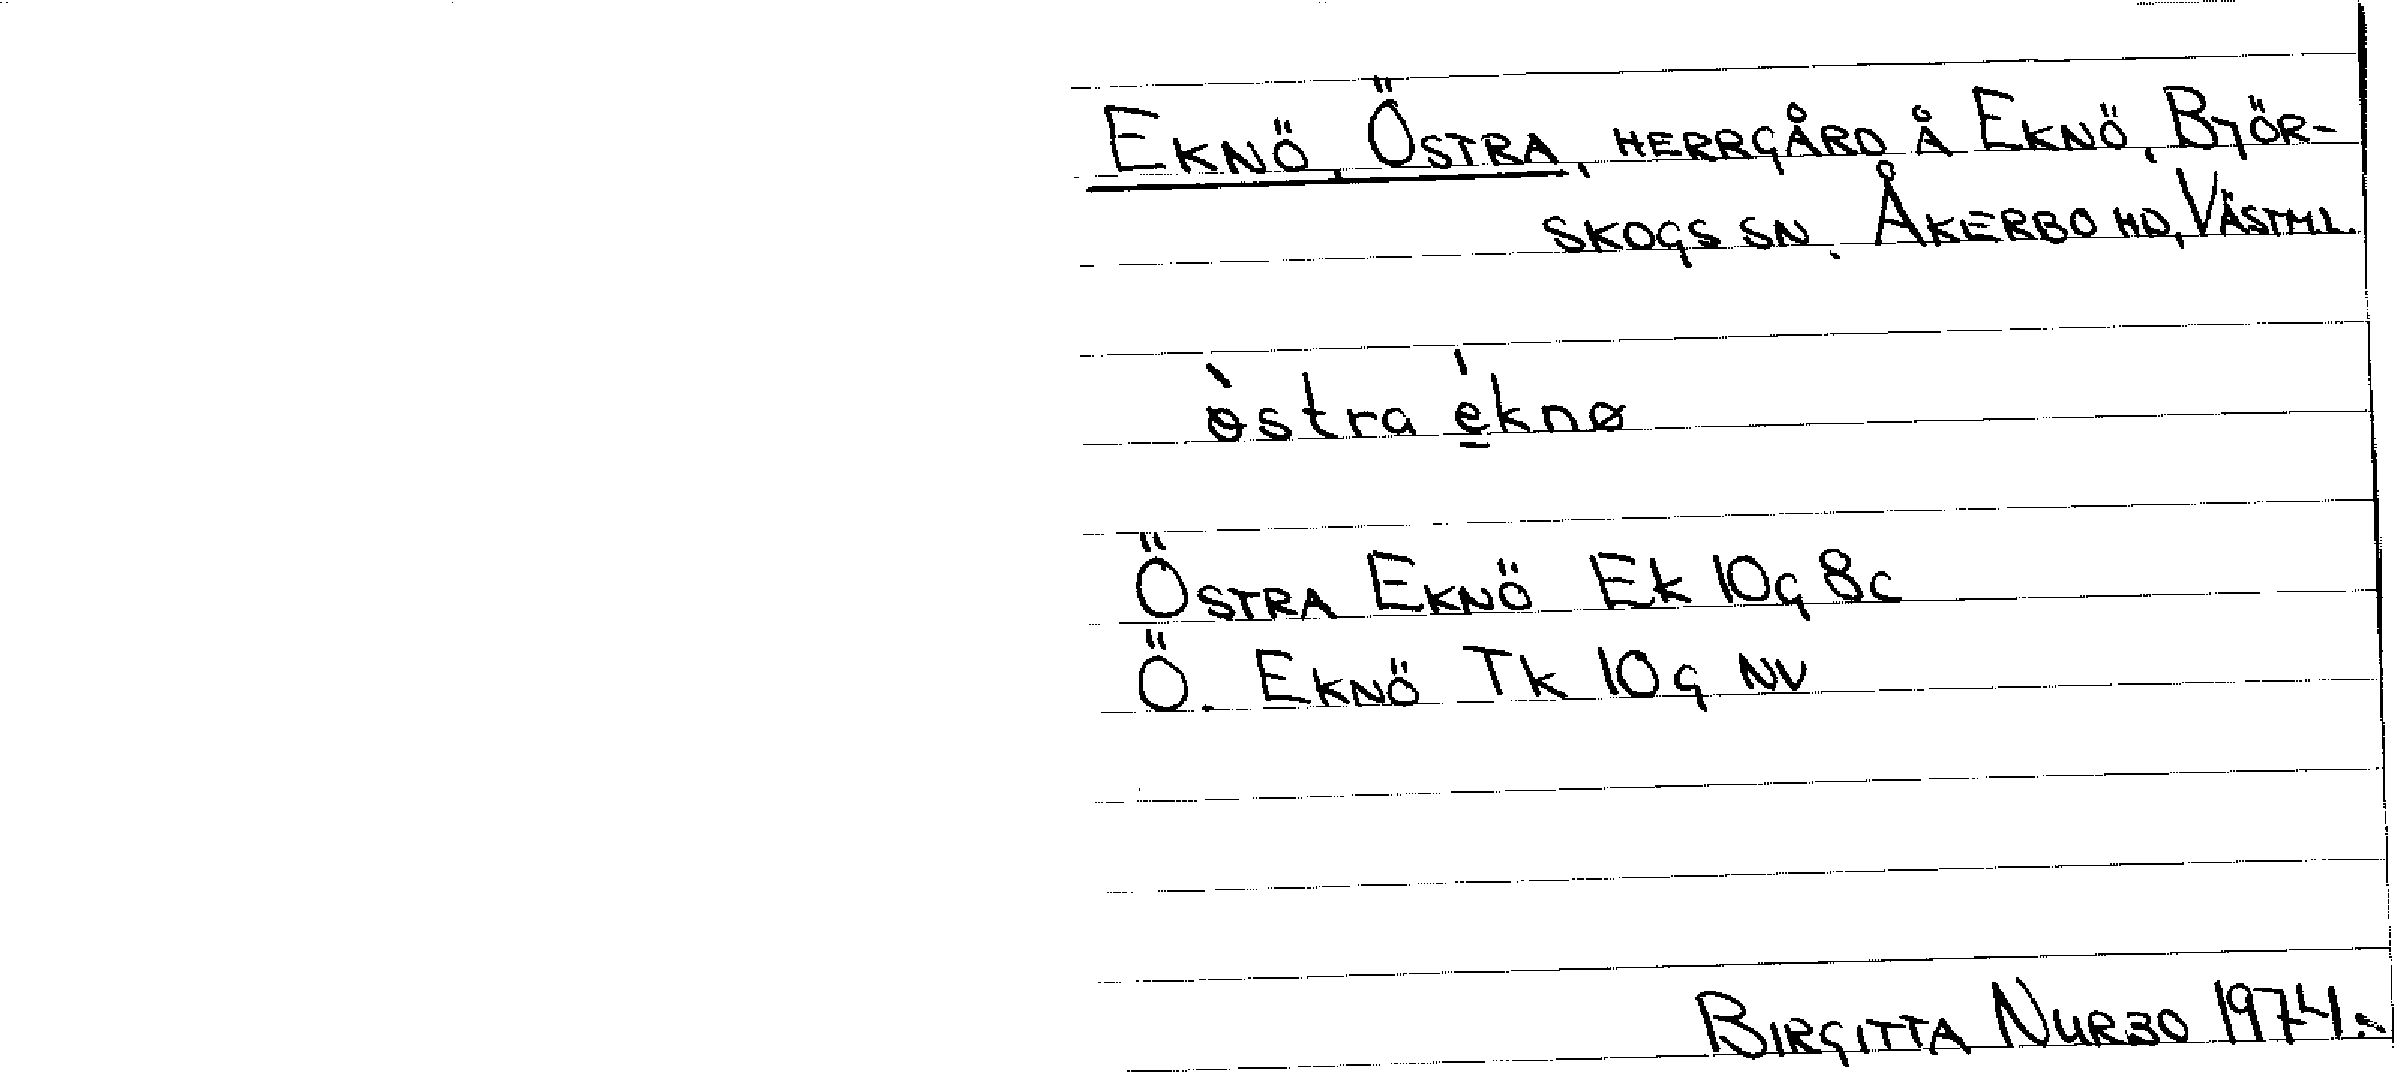 EKNÖ, ÖSTRA, HERRGÅRD Å EKNÖ, BJÖR-
SKOGS SN, ÅKERBO HD, VÄSTML.
ɵ̀stra é̲knø
ÖSTRA EKNÖ Ek 10G 8c
Ö. EKNÖ Tk 10G NV
BIRGITTA NURBO 1974.